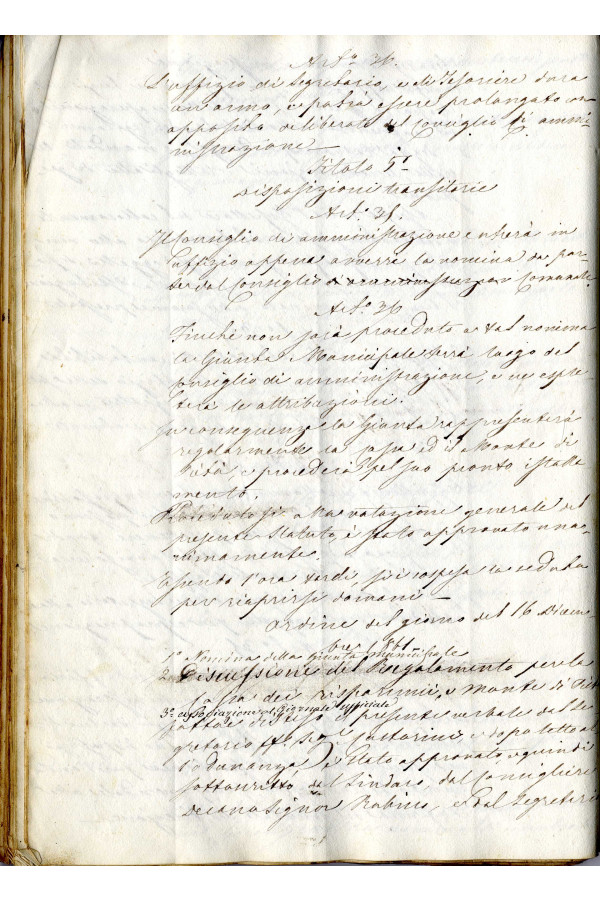 Art.º 34.
L'uffizio di Segretario, e di Tesoriere dura
un anno, e potrà essere prolungato con
apposito deliberato del Consiglio di ammi-
nistrazione
Titolo 5º
Disposizioni transitorie
Art.º 35.
Il Consiglio di amministrazione entrerà in
uffizio appena avverrà la nomina da par-
te del Consiglio Comunale.
Art.º 36
Finchè non sarà proceduto a tal nomina
la Giunta Municipale terrà luogo del
Consiglio di amministrazione, e ne esple-
terà le attribuzioni.
In conseguenza la Giunta rappresenterà
regolarmente la cassa ed il Monte di
Pietà e procederà pel suo pronto istalla-
mento.
alla votazione generale del
presente Statuto, è stato approvato una-
nimamente.
Essendo l'ora tarda, si è sospesa la seduta
per riaprirsi domani —
Ordine del giorno del 16 Dicem-
bre 1861
1º Nomina della Giunta Municipale
2º Discussione del Regolamento per la
Cassa dei risparmii, e Monte di Pietà
3º associazione al Giornale uffiziale
disteso il presente verbale dal Se-
gretario ff. Sig.r e dopo letto al-
l'adunanza, è stato approvato, e quindi
sottoscritto dal Sindaco, dal Consigliere
Decano Signor Rabino, e dal Segretario